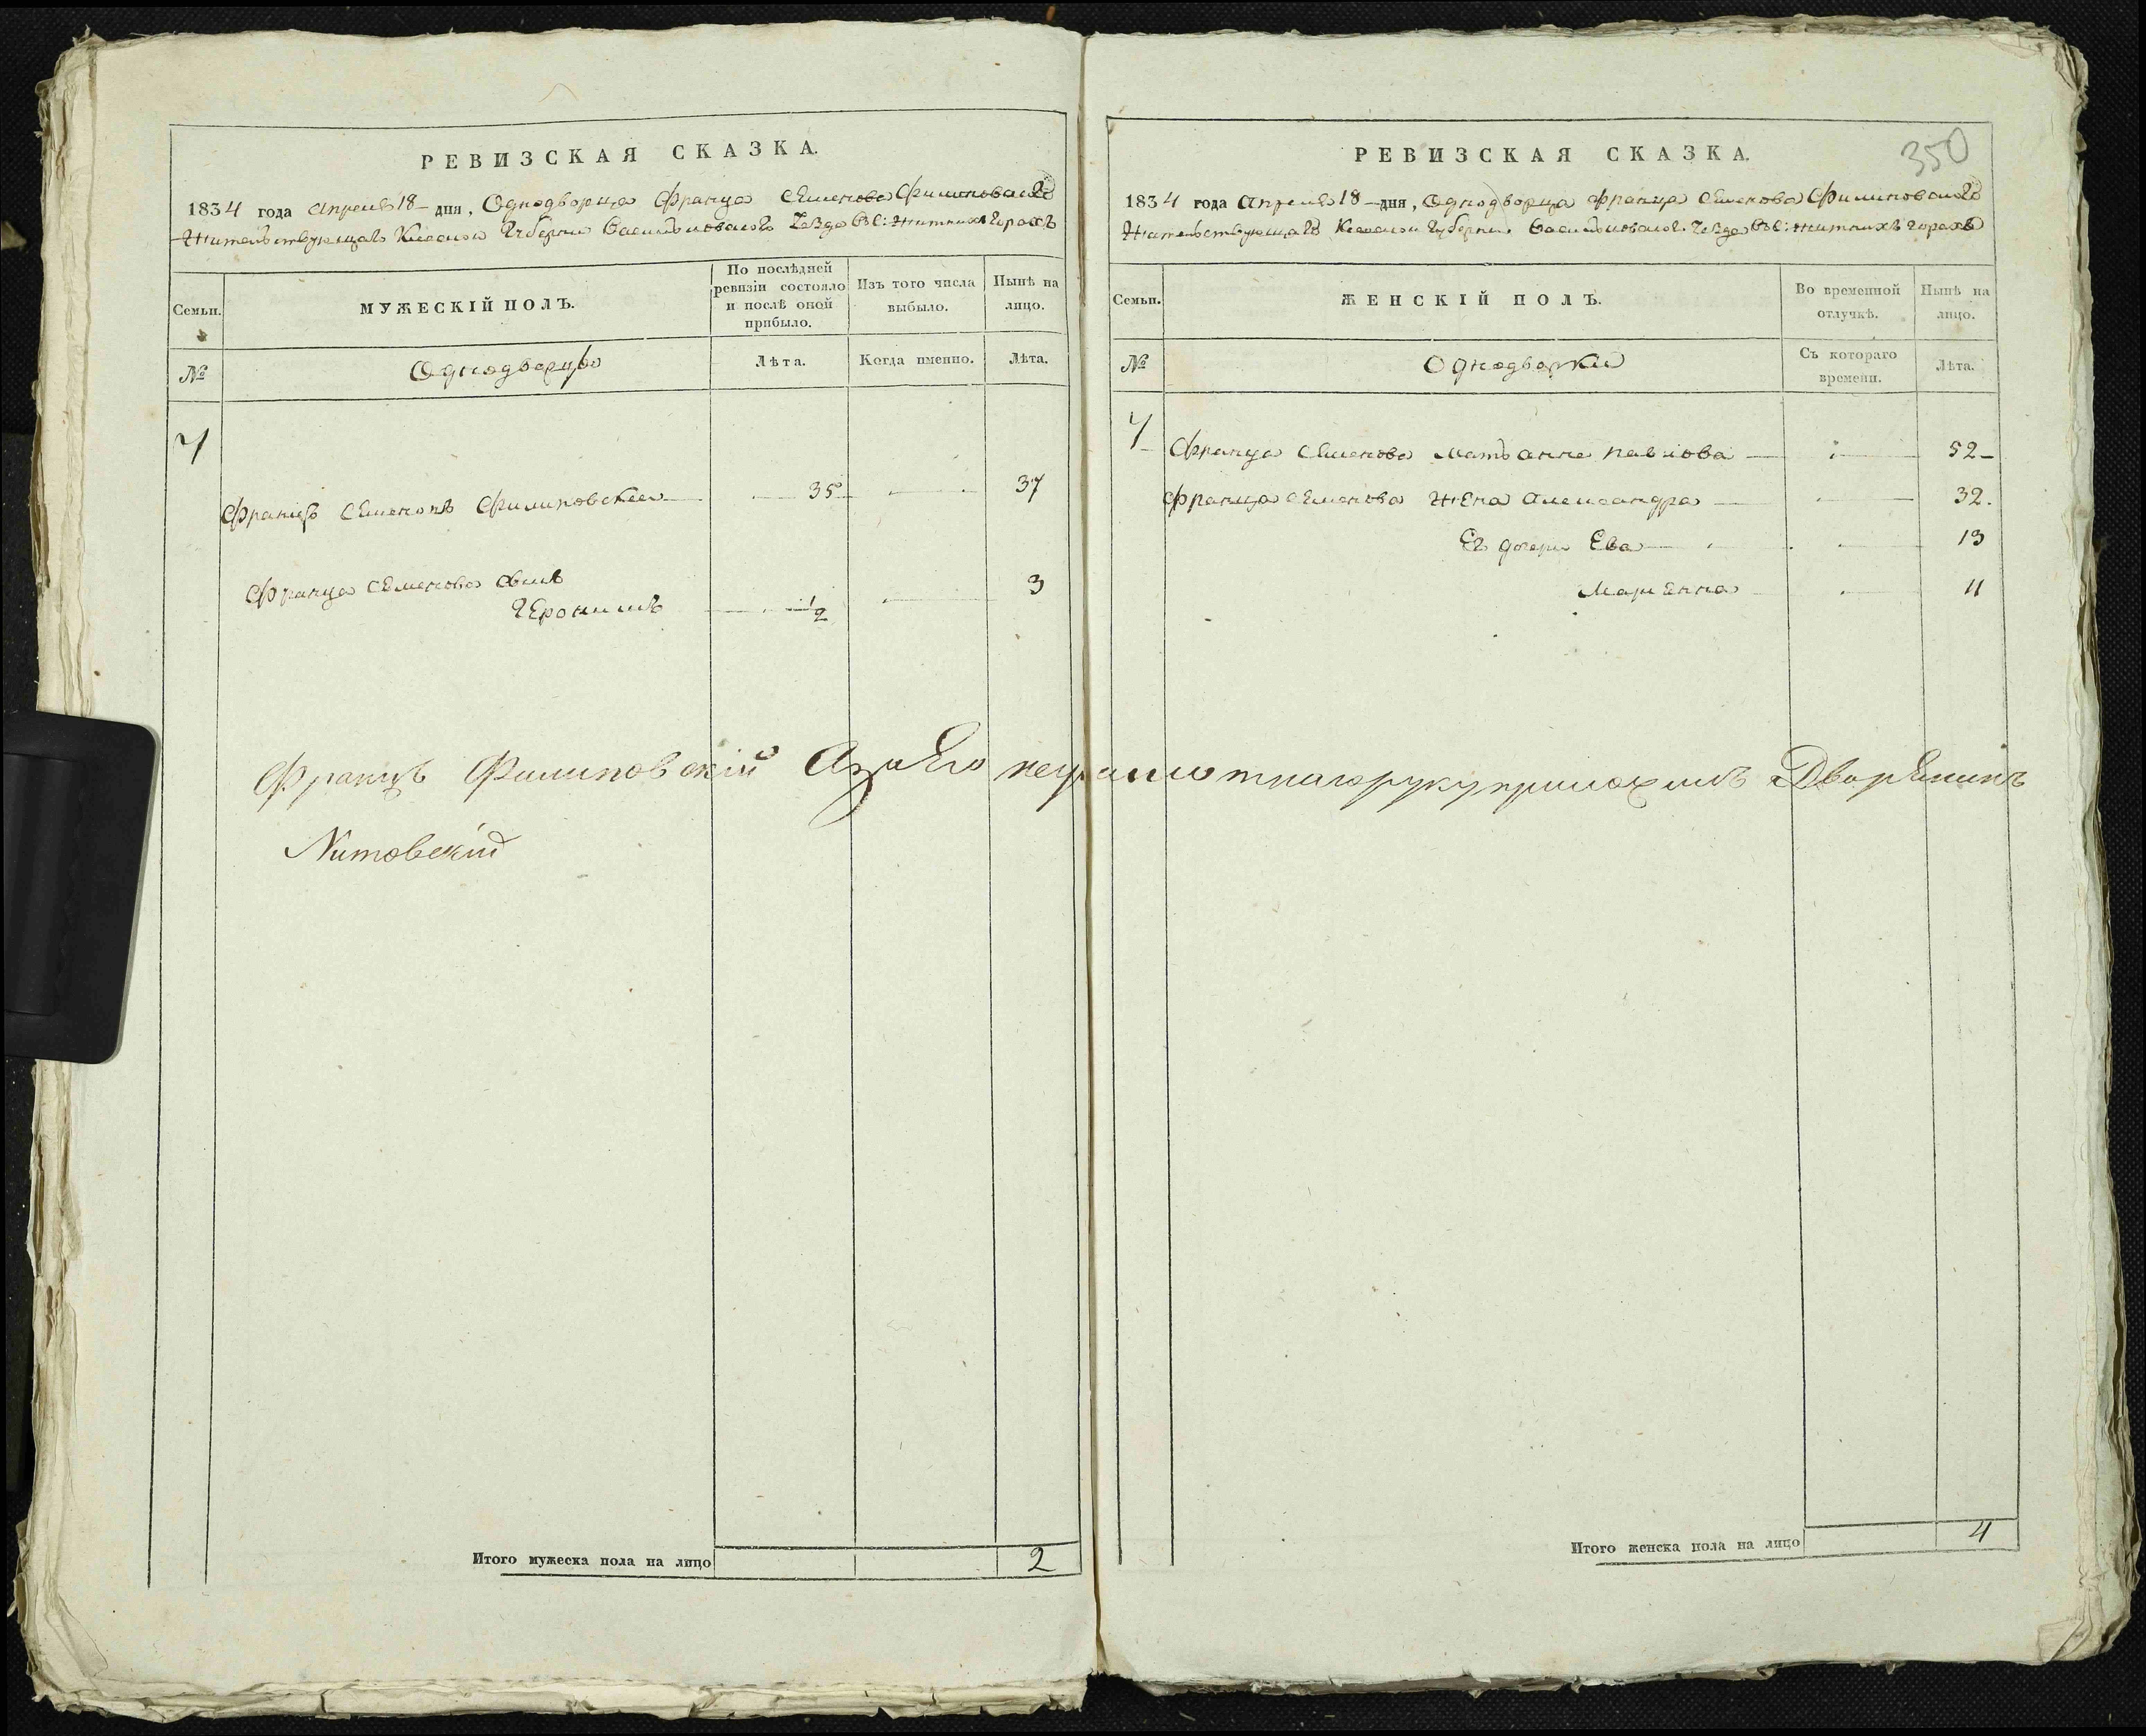 РЕВИЗСКАЯ СКАЗКА.
1834 года апреля 18 дня, Однодворца Франца Семенова Филиповскаго
Жительствующаго Киевской Губернии Васильковскаго уезда въ с: Житнихъ Горахъ
Семьи.
МУЖЕСКІЙ ПОЛЪ.
По послѣдней ревизіи состояло и послѣ оной прибыло.
Изъ того числа выбыло.
Нынѣ на лицо.
№
Однодворцы
Лѣта.
Когда именно.
Лѣта.
7
Францъ Семеновъ Филиповский 35 37
Франца Семенова сынъ
Геронимъ 1/2 3
Францъ Филиповскій А за Его неграмотнаго руку приложилъ Дворенинъ
Литовскій
Итого мужеска пола на лицо 2
350
РЕВИЗСКАЯ СКАЗКА.
1834 года апреля 18 дня, Однодворца Франца Семенова Филиповскаго
Жительствующаго Киевской Губернии Васильковскаго уезда въ с: Житнихъ Горахъ
Семьи.
ЖЕНСКІЙ ПОЛЪ.
Во временной отлучкѣ.
Нынѣ на лицо.
№
Однодворки
Съ котораго времени.
Лѣта.
7
Франца Семенова мать Анна Павлова 52
Франца Семенова жена Александра 32.
Ег дочери Ева 13
Марiенна 11
Итого женска пола на лицо 4